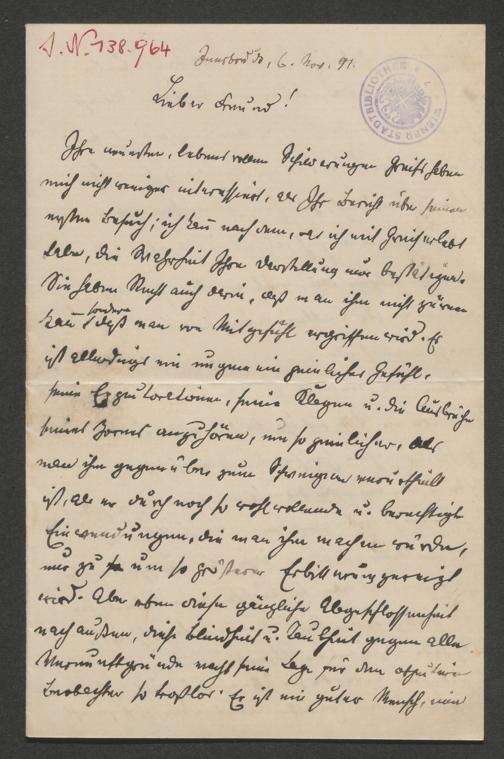 I. N. 138.964
WIENER STADTBIBLIOTHEK
Innsbruck, 6. Nov. 91.
Lieber Freund!
Ihre neuesten, lebensvollen Schilderungen Greifs haben
mich nicht weniger interessiert, als Ihr Bericht über seinen
ersten Besuch; ich kann nach dem, was ich mit Greif erlebt
habe, die Wahrheit Ihrer Darstellung nur bestätigen.
Sie haben Recht auch darin, daß man ihm nicht zürnen
kann, sondern daß man von Mitgefühl ergriffen wird. Es
ist allerdings ein ungemein peinliches Gefühl,
seine Expectorationen, seine Klagen u. die Ausbrüche
seines Zornes anzuhören, um so peinlicher, als
man ihm gegenüber zum Schweigen verurtheilt
ist, als er durch noch so wohlwollende u. berechtigte
Einwendungen, die man ihm machen würde,
nur zu um so größerer Erbitterung gereizt
wird. Aber eben diese gänzliche Abgeschlossenheit
nach außen, diese Blindheit u. Taubheit gegen alle
Vernunftgründe macht seine Lage für den
Beobachter so trostlos. Er ist ein guter Mensch, ein